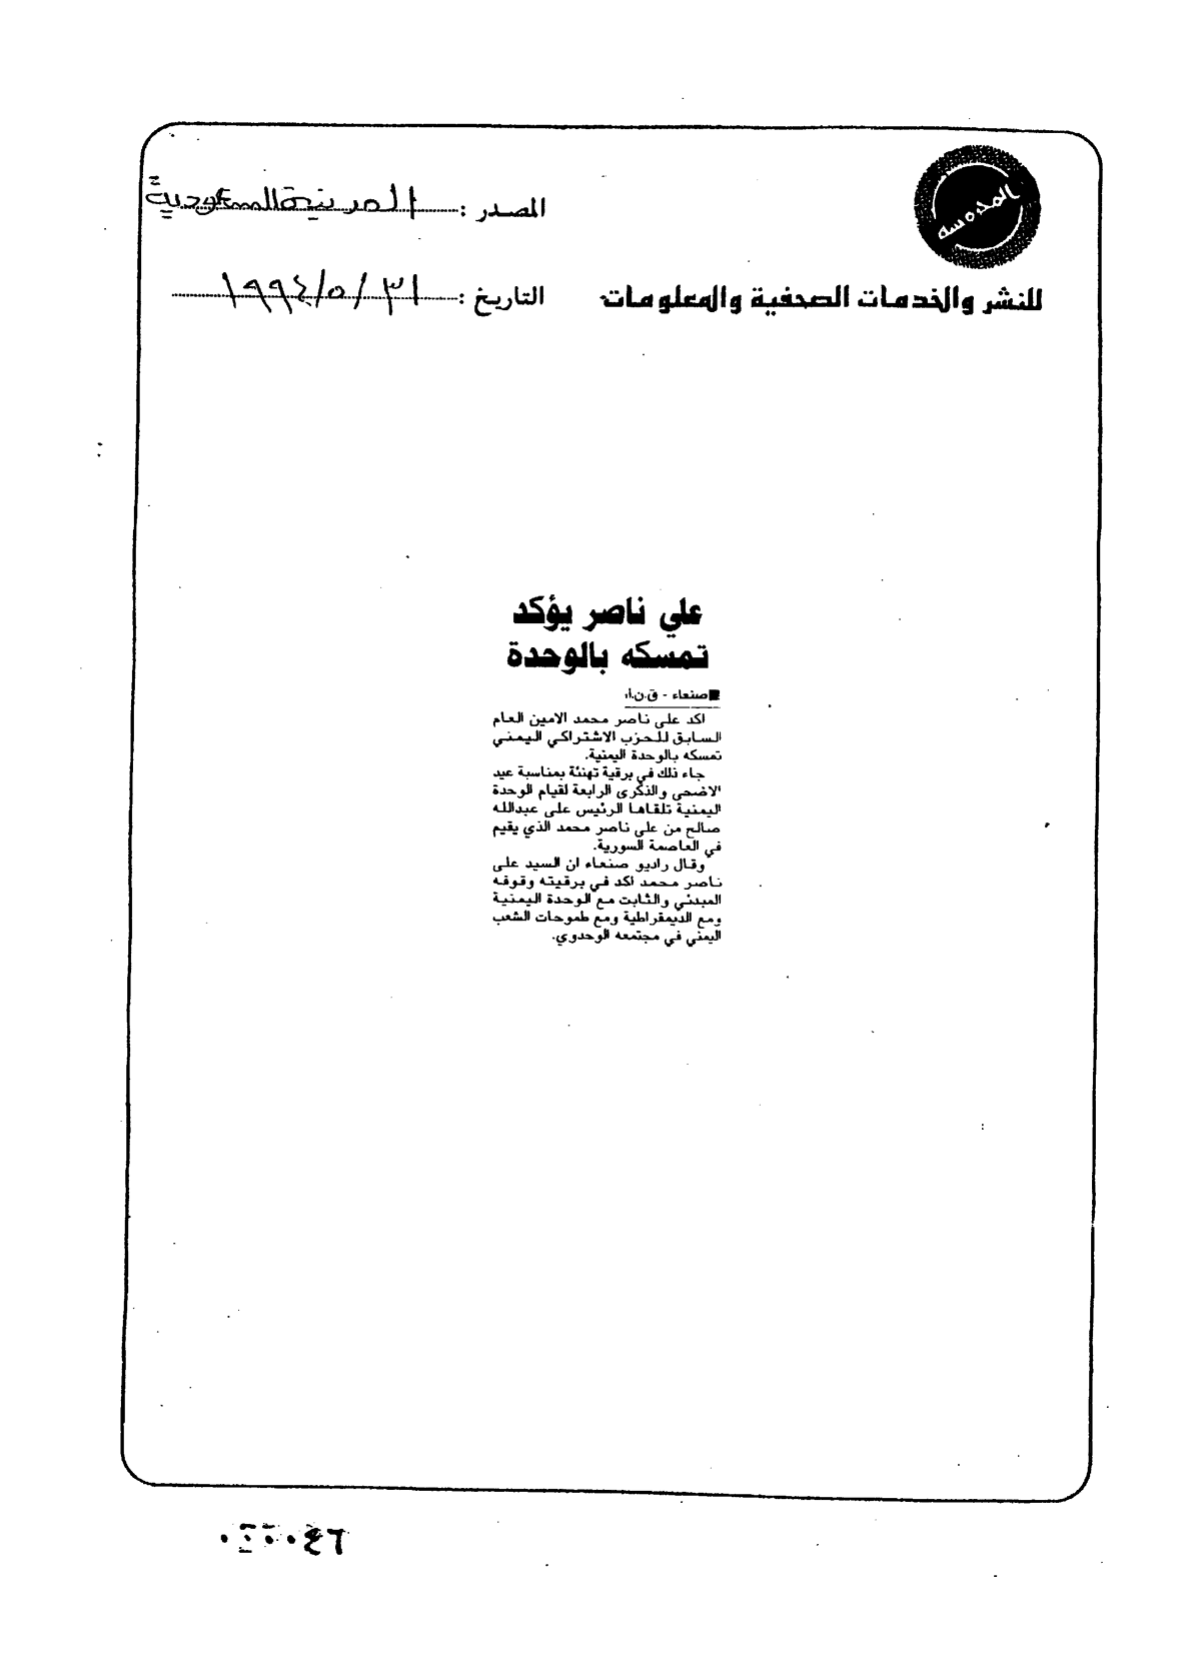 المصدر : المدينة السعودية
للنشر والخدمات الصحفية والمعلومات
التاريخ : ٣١/٥/١٩٩٤
علي ناصر يؤكد
تمسكه بالوحدة
■ صنعاء - ق.ن.أ:
اكد على ناصر محمد الامين العام
السابق للحزب الاشتراكي اليمني
تمسكه بالوحدة اليمنية.
جاء ذلك في برقية تهنئة بمناسبة عيد
الاضحى والذكرى الرابعة لقيام الوحدة
اليمنية تلقاها الرئيس على عبدالله
صالح من على ناصر محمد الذي يقيم
في العاصمة السورية.
وقال راديو صنعاء ان السيد على
ناصر محمد اكد في برقيته وقوفه
المبدئي والثابت مع الوحدة اليمنية
ومع الديمقراطية ومع طموحات الشعب
اليمني في مجتمعه الوحدوي.